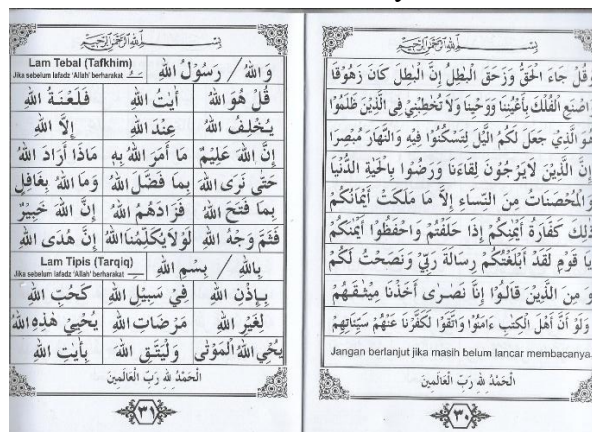 بِسْمِ اللهِ الرَّحْمٰنِ الرَّحِيْمِ
وَقُلْ جَاءَ الْحَقُّ وَزَحَقَ الْبٰطِلُ إِنَّ الْبٰطِلَ كَانَ زَهُوْقًا
وَاصْنَعِ الْفُلْكَ بِأَعْيُنِنَا وَوَحْيِنَا وَلَا تُخَطِبْنِيْ فِى الَّذِيْنَ ظَلَمُوْا
هُوَ الَّذِيْ جَعَلَ لَكُمُ الَّيْلَ لِتَسْكُنُوْا فِيْهِ وَالنَّهَارَ مُبْصِرًا
إِنَّ الَّذِيْنَ لَايَرْجُوْنَ لِقَاءَنَا وَرَضُوْا بِالْحَيٰةِ الدُّنْيَا
وَالْمُحْصَنَاتُ مِنَ النِّسَاءِ إِلَّا مَا مَلَكَتْ أَيْمَانُكُمْ
ذٰلِكَ كَفَّارَةُ أَيْمٰنِكُمْ إِذَا حَلَفْتُمْ وَاحْفَظُوْا أَيْمٰنَكُمْ
يَا قَوْمِ لَقَدْ أَبْلَغْتُكُمْ رِسَالَةَ رَبِّيْ وَنَصَحْتُ لَكُمْ
وَ مِنَ الَّذِيْنَ قَالُوْا إِنَّا نَصٰرٰى أَخَذْنَا مِيْثٰقَهُمْ
وَلَوْ أَنَّ أَهْلَ الْكِتٰبِ ءَامَنُوْا وَاتَّقَوْا لَكَفَّرْنَا عَنْهُمْ سَيِّئَاتِهِمْ
Jangan berlanjut jika masih belum lancar membacanya.
الْحَمْدُ لِلهِ رَبِّ الْعَالَمِيْنَ
٣٠
بِسْمِ اللهِ الرَّحْمٰنِ الرَّحِيْمِ
وَاللهُ / رَسُوْلُ اللهِ Lam Tebal (Tafkhim)
Jika sebelum lafadz 'Allah' berharakat
قُلْ هُوَ اللهُ أَيٰتُ اللهِ فَلَعْنَةُ اللهِ
يُخْلِفُ اللهُ عِنْدَ اللهِ إِلَّا اللهُ
إِنَّ اللهَ عَلِيْمٌ مَا أَمَرَ اللهُ بِهِ مَاذَا أَرَادَ اللهُ
حَتّٰى نَرَى اللهَ بِمَا فَضَّلَ اللهُ وَمَا اللهُ بِغَافِلٍ
بِمَا فَتَحَ اللهُ فَزَادَهُمُ اللهُ إِنَّ اللهَ خَبِيْرٌ
فَثَمَّ وَجْهُ اللهِ لَوْلَا يُكَلِّمُنَا اللهُ إِنَّ هُدَى اللهِ
بِاللهِ / بِسْمِ اللهِ Lam Tipis (Tarqiq)
Jika sebelum lafadz 'Allah' berharakat
بِإِذْنِ اللهِ فِيْ سَبِيْلِ اللهِ كَحُبِّ اللهِ
لِغَيْرِ اللهِ مَرْضَاتِ اللهِ يُحْيِيْ هٰذِهِ اللهُ
يُحْيِ اللهُ الْمَوْتٰى وَلْيَتَّقِ اللهَ بِأٰيٰتِ اللهِ
الْحَمْدُ لِلهِ رَبِّ الْعَالَمِيْنَ
٣١